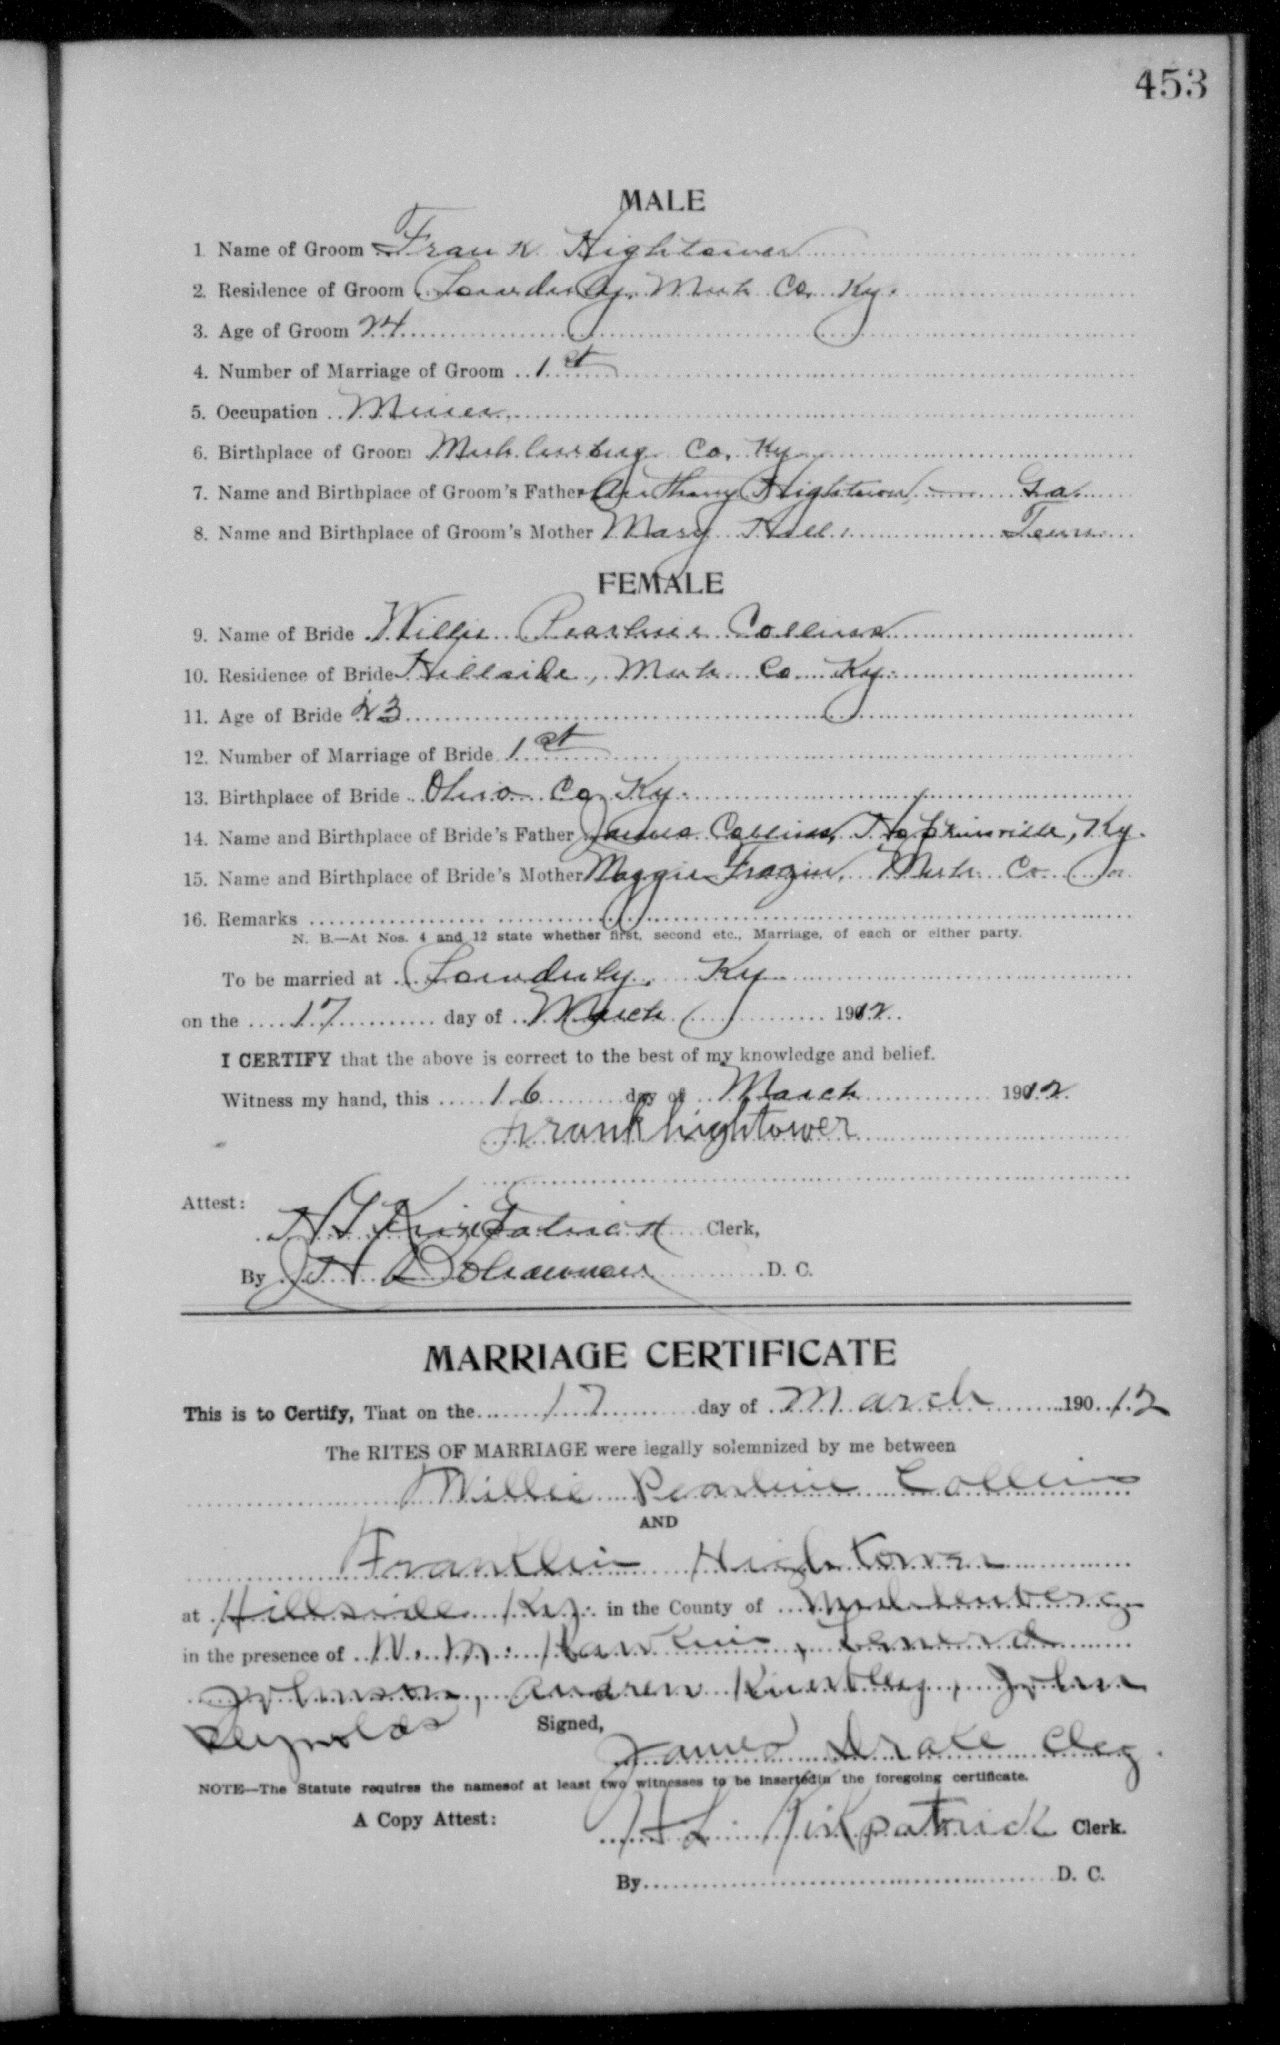 453
MALE
1 Name of Groom Frank Hightower
2. Residence of Groom Muh Co. Ky.
3. Age of Groom 24
4. Number of Marriage of Groom 1st
5. Occupation Miner
6. Birthplace of Groom Muhlenberg Co. Ky
7. Name and Birthplace of Groom's Father Anthony Hightower, Ga.
8. Name and Birthplace of Groom's Mother Mary Hall Tenn
FEMALE
9. Name of Bride Willie Pearline Collins
10. Residence of Bride Hillside, Muh Co Ky.
11. Age of Bride 23
12. Number of Marriage of Bride 1st
13. Birthplace of Bride Ohio Co Ky.
14. Name and Birthplace of Bride's Father James Collins, Hopkinsville, Ky.
15. Name and Birthplace of Bride's Mother Maggie Muh Co
16. Remarks
N. B.—At Nos. 4 and 12 state whether first, second etc., Marriage, of each or either party.
To be married at Ky
on the 17 day of March 19012
I CERTIFY that the above is correct to the best of my knowledge and belief.
Witness my hand, this 16 day of March 19012
Frank hightower
Attest:
Kirkpatrick Clerk,
By D. C.
MARRIAGE CERTIFICATE
This is to Certify, That on the 17 day of March 190 12
The RITES OF MARRIAGE were legally solemnized by me between
Willie Pearline Collins
AND
Franklin Hightower
at Hillside Ky. in the County of Muhlenberg
in the presence of W. M. Lenerd
Johnson, Andrew John
Reynolds Signed,
James Drake Cleg.
NOTE—The Statute requires the namesof at least two witnesses to be insertedin the foregoing certificate.
A Copy Attest: Kirkpatrick Clerk.
By D. C.